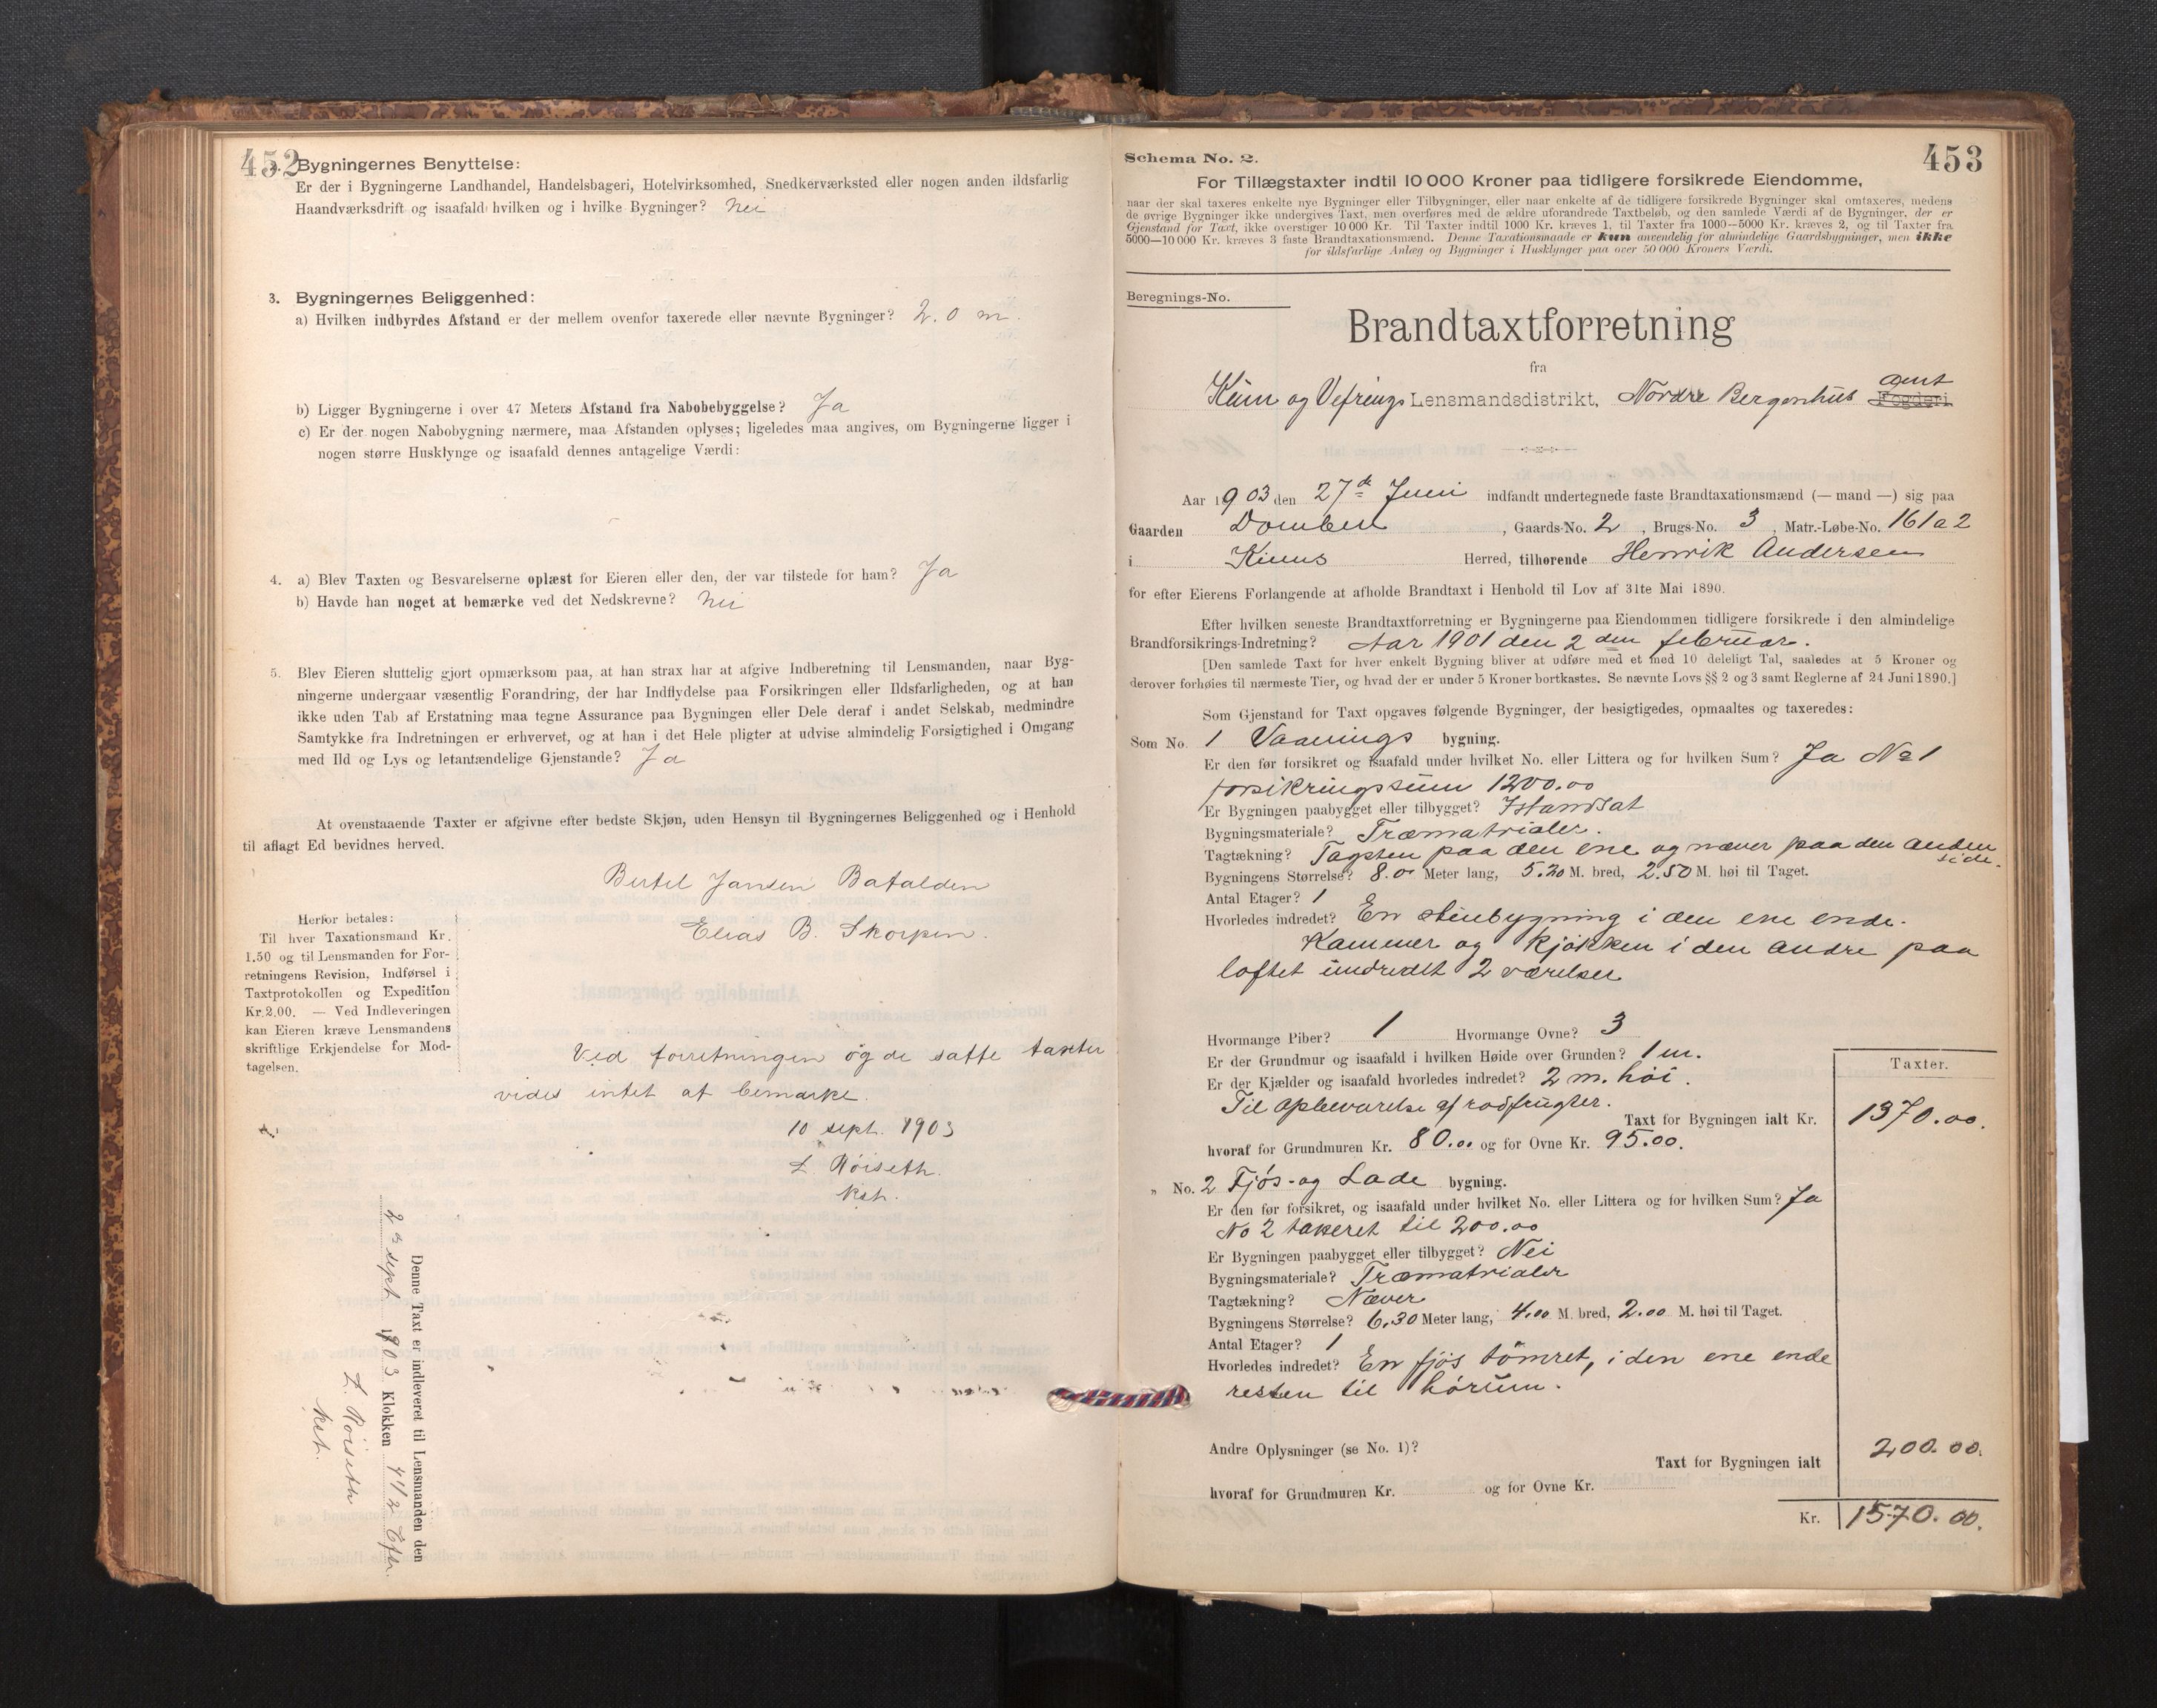 452
2. Bygningernes Benyttelse:
Er der i Bygningerne Landhandel, Handelsbageri, Hotelvirksomhed, Snedkerværksted eller nogen anden ildsfarlig
Haandværksdrift og isaafald hvilken og i hvilke Bygninger? Nei
3. Bygningernes Beliggenhed:
a) Hvilken indbyrdes Afstand er der mellem ovenfor taxerede eller nævnte Bygninger? 2.0 m.
b) Ligger Bygningerne i over 47 Meters Afstand fra Nabobebyggelse? Ja
c) Er der nogen Nabobygning nærmere, maa Afstanden oplyses; ligeledes maa angives, om Bygningerne ligger i
nogen større Husklynge og isaafald dennes antagelige Værdi:
4. a) Blev Taxten og Besvarelserne oplæst for Eieren eller den, der var tilstede for ham? Ja
b) Havde han noget at bemærke ved det Nedskrevne? Nei
5. Blev Eieren sluttelig gjort opmærksom paa, at han strax har at afgive Indberetning til Lensmanden, naar Byg-
ningerne undergaar væsentlig Forandring, der har Indflydelse paa Forsikringen eller Ildsfarligheden, og at han
ikke uden Tab af Erstatning maa tegne Assurance paa Bygningen eller Dele deraf i andet Selskab, medmindre
Samtykke fra Indretningen er erhvervet, og at han i det Hele pligter at udvise almindelig Forsigtighed i Omgang
med Ild og Lys og letantændelige Gjenstande? Ja
At ovenstaaende Taxter er afgivne efter bedste Skjøn, uden Hensyn til Bygningernes Beliggenhed og i Henhold
til aflagt Ed bevidnes herved.
Bertel Jansen Batalden
Elias B. Skorpen.
Herfor betales:
Til hver Taxationsmand Kr.
1.50 og til Lensmanden for For-
retningens Revision, Indførsel i
Taxtprotokollen og Expedition
Kr. 2.00. — Ved Indleveringen
kan Eieren kræve Lensmandens
skriftlige Erkjendelse for Mod-
tagelsen.
Ved forretningen og de satte taxter
vides intet at bemærke.
10 sept. 1903
L. Röiseth.
kst.
Denne Taxt er indleveret til Lensmanden den
2de sept 1903 Klokken 4 1/2 Efm.
L. Röiseth
kst.
453
Schema No. 2.
For Tillægstaxter indtil 10 000 Kroner paa tidligere forsikrede Eiendomme,
naar der skal taxeres enkelte nye Bygninger eller Tilbygninger, eller naar enkelte af de tidligere forsikrede Bygninger skal omtaxeres, medens
de øvrige Bygninger ikke undergives Taxt, men overføres med de ældre uforandrede Taxtbeløb, og den samlede Værdi af de Bygninger, der er
Gjenstand for Taxt, ikke overstiger 10 000 Kr. Til Taxter indtil 1000 Kr. kræves 1, til Taxter fra 1000—5000 Kr. kræves 2, og til Taxter fra
5000—10 000 Kr. kræves 3 faste Brandtaxationsmænd. Denne Taxationsmaade er kun anvendelig for almindelige Gaardsbygninger, men ikke
for ildsfarlige Anlæg og Bygninger i Husklynger paa over 50 000 Kroners Værdi.
Beregnings-No.
Brandtaxtforretning
fra
Kinn og Vefrings Lensmandsdistrikt, Nordre Bergenhus amt Fogderi.
Aar 1903 den 27de Juni indfandt undertegnede faste Brandtaxationsmænd (— mand —) sig paa
Gaarden Domben, Gaards-No. 2, Brugs-No. 3, Matr.-Løbe-No. 161a2
i Kinns Herred, tilhørende Henrik Andersen
for efter Eierens Forlangende at afholde Brandtaxt i Henhold til Lov af 31te Mai 1890.
Efter hvilken seneste Brandtaxtforretning er Bygningerne paa Eiendommen tidligere forsikrede i den almindelige
Brandforsikrings-Indretning? Aar 1901 den 2den februar.
[Den samlede Taxt for hver enkelt Bygning bliver at udføre med et med 10 deleligt Tal, saaledes at 5 Kroner og
derover forhøies til nærmeste Tier, og hvad der er under 5 Kroner bortkastes. Se nævnte Lovs §§ 2 og 3 samt Reglerne af 24 Juni 1890.]
Som Gjenstand for Taxt opgaves følgende Bygninger, der besigtigedes, opmaaltes og taxeredes:
Som No. 1 Vaanings bygning.
Er den før forsikret og isaafald under hvilket No. eller Littera og for hvilken Sum? Ja No 1
forsikringssum 1200.00
Er Bygningen paabygget eller tilbygget? Istandsat
Bygningsmateriale? Træmatrialer.
Tagtækning? Tagsten paa den ene og næver paa den anden side.
Bygningens Størrelse? 8.00 Meter lang, 5.20 M. bred, 2.50 M. høi til Taget.
Antal Etager? 1
Hvorledes indredet? En stuebygning i den ene ende.
Kammer og kjøkken i den andre paa
loftet indredt 2 værelser
Hvormange Piber? 1 Hvormange Ovne? 3
Er der Grundmur og isaafald i hvilken Høide over Grunden? 1 m.
Er der Kjælder og isaafald hvorledes indredet? 2 m. høi.
Til opbevarelse af rodfrugter.
Taxter.
Taxt for Bygningen ialt Kr. 1370.00.
hvoraf for Grundmuren Kr. 80.00 og for Ovne Kr. 95.00.
" No. 2 Fjøs- og Lade bygning.
Er den før forsikret, og isaafald under hvilket No. eller Littera og for hvilken Sum? Ja
No 2 takseret til 200.00
Er Bygningen paabygget eller tilbygget? Nei
Bygningsmateriale? Træmatrialer
Tagtækning? Næver
Bygningens Størrelse? 6.30 Meter lang, 4.00 M. bred, 2.00 M. høi til Taget.
Antal Etager? 1
Hvorledes indredet? En fjøs tømret, i den ene ende
resten til hørum.
Andre Oplysninger (se No. 1)?
Taxt for Bygningen ialt 200.00.
hvoraf for Grundmuren Kr. og for Ovne Kr.
Kr. 1570.00.